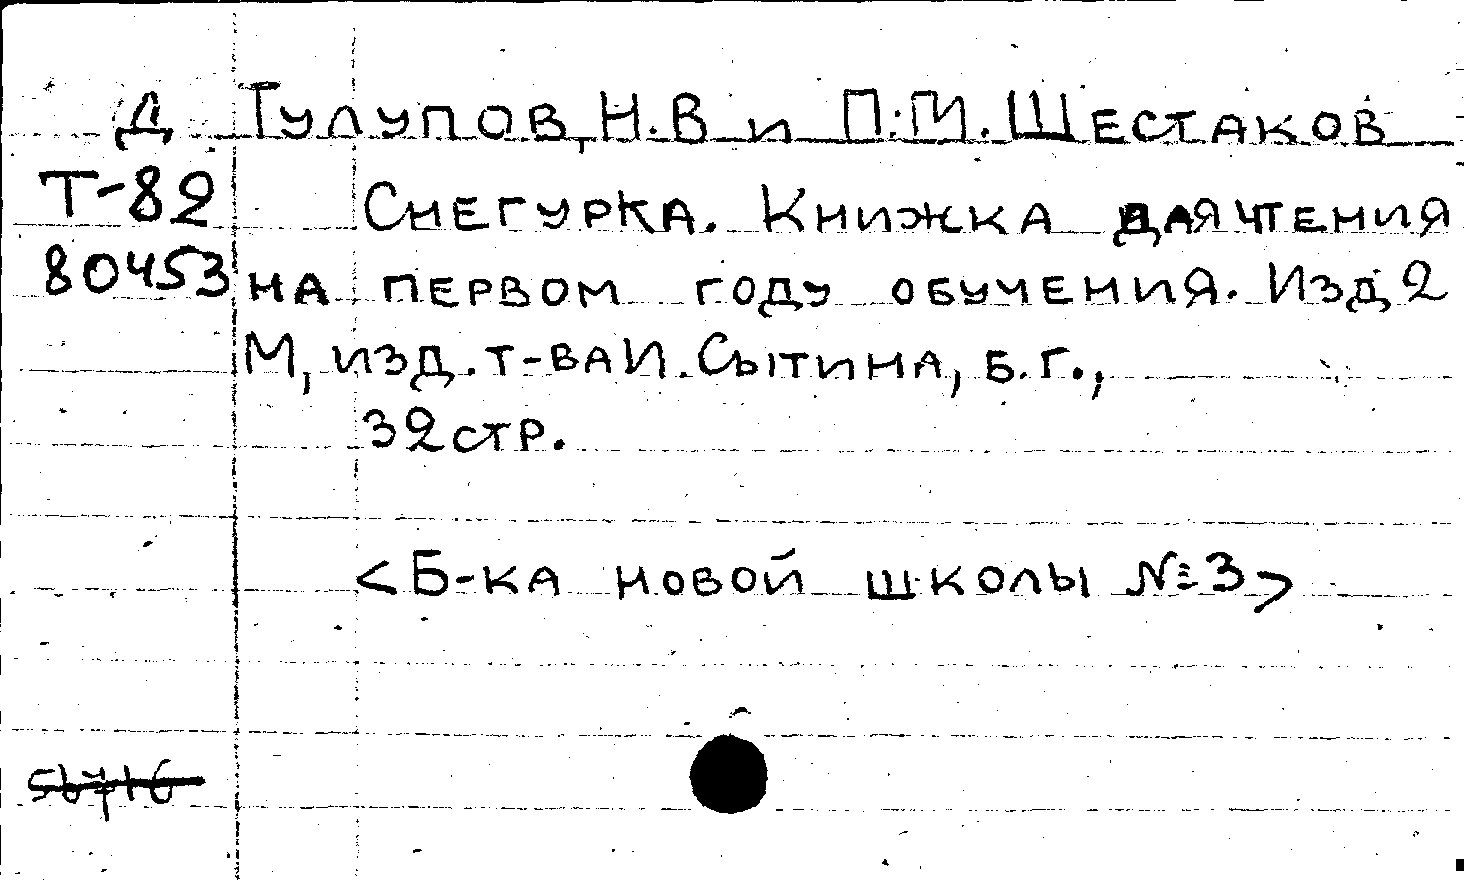 Д Тулупов, Н.В и П.М. Шестаков
Т-82 Снегурка. Книжка для чтения
80453 на первом году обучения. Изд 2
М, изд. т-ва И. Сытина, б.г.,
32 стр.
<Б-ка новой школы №3>